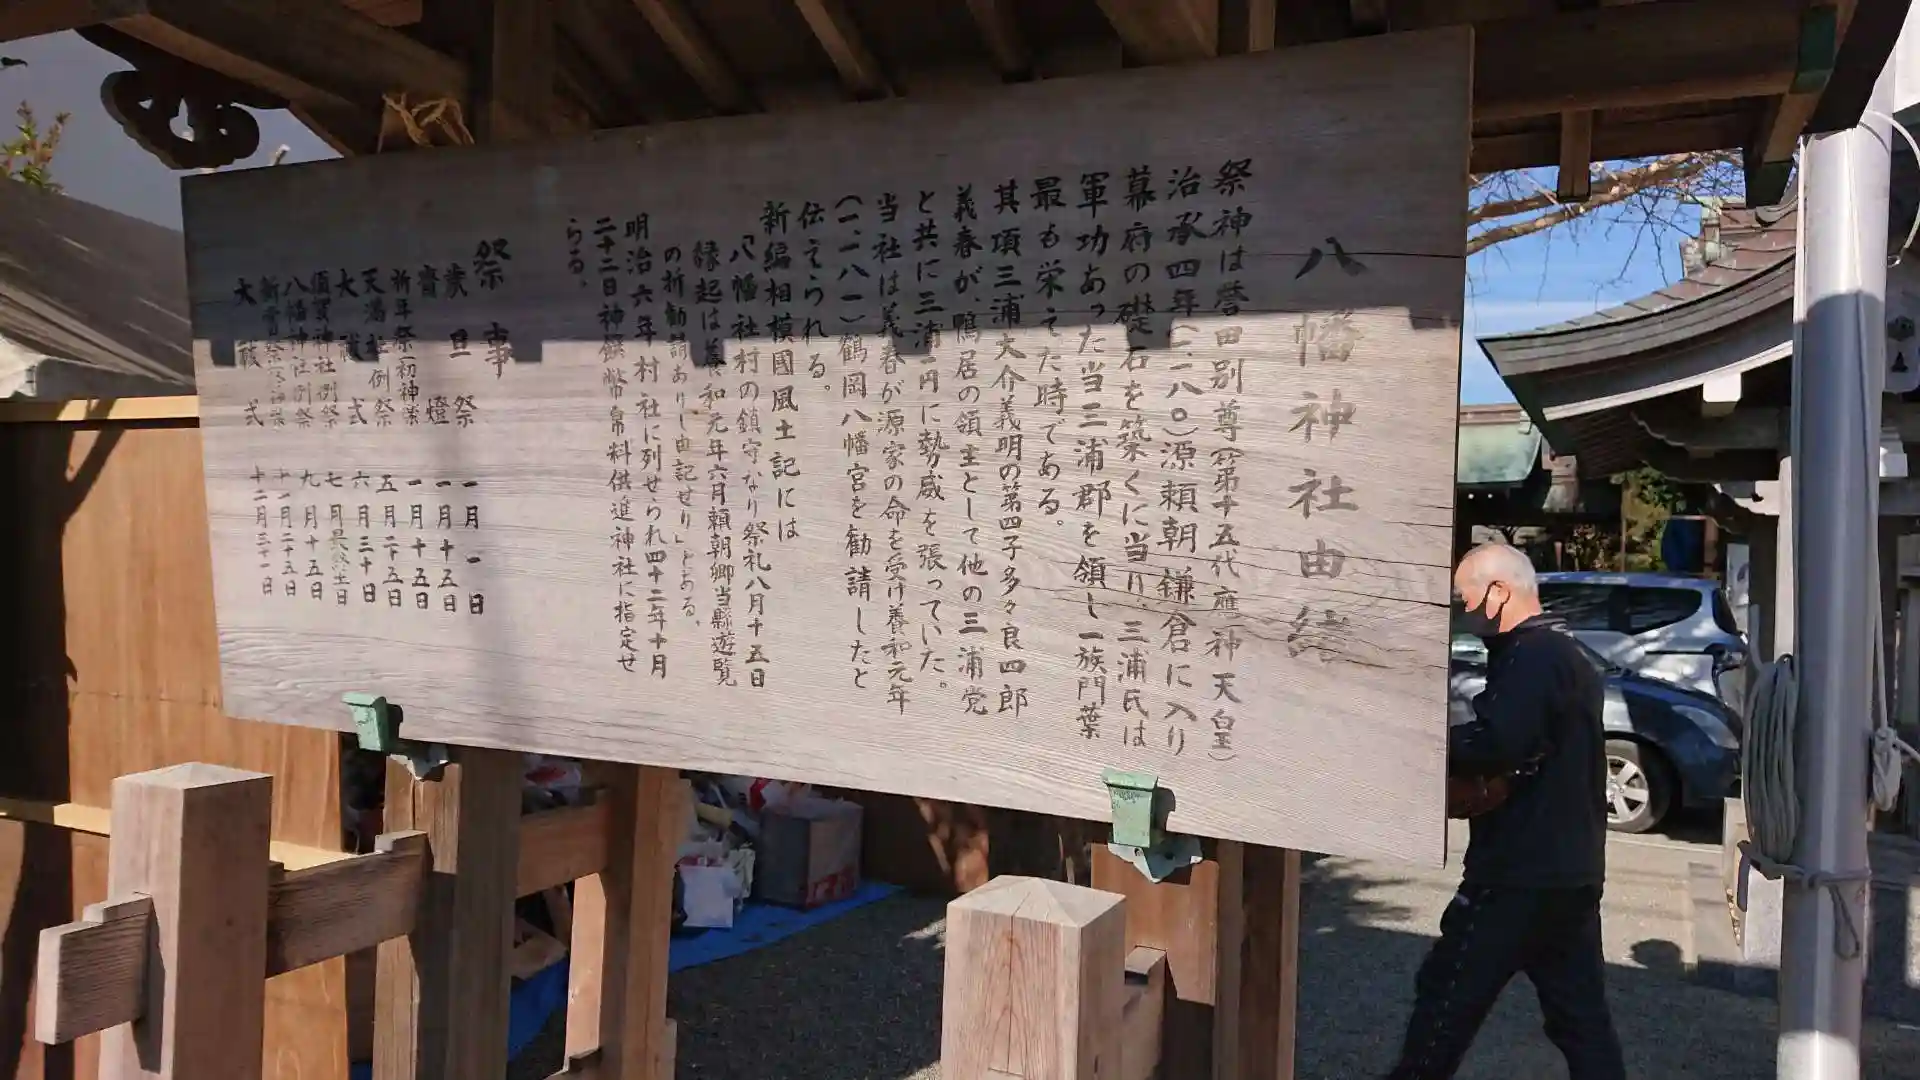 八幡神社由緒
祭神は誉田別尊(第十五代應神天皇)
治承四年(一一八〇)源頼朝鎌倉に入り
幕府の礎石を築くに当り、三浦氏は
軍功あった当三浦郡を領し一族門葉
最も栄えた時である。
其項三浦大介義明の第四子多々良四郎
義春が、鴨居の領主として他の三浦党
と共に三浦一円に勢威を張っていた。
当社は義春が源家の命を受け養和元年
(一一八一)鶴岡八幡宮を勧請したと
伝えられる。
新編相模國風土記には
「八幡社村の鎮守なり祭礼八月十五日
縁起は養和元年六月頼朝卿当縣遊覧
の折勧請ありし由記せり」とある、
明治六年村社に列せられ四十二年十月
二十二日神饌幣帛料供進神社に指定せ
らる、
祭事
歳旦祭 一月一日
齋燈 一月十五日
祈年祭(初神楽 一月十五日
天満社例祭 五月二十五日
大祓式 六月三十日
須賀神社例祭 七月最終土日
八幡神社例祭 九月十五日
新嘗祭 十一月二十五日
大祓式 十二月三十一日